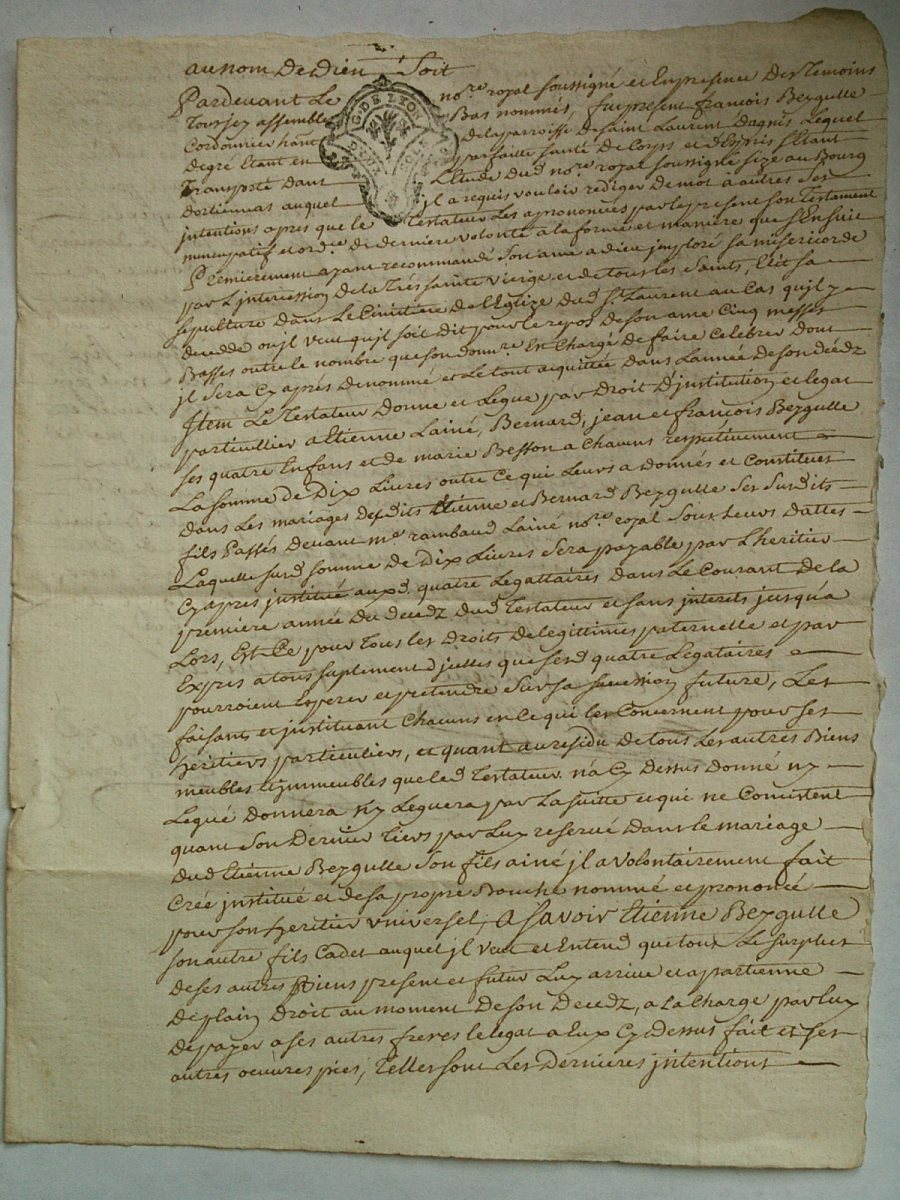 au nom de dieu Soit
Pardevant Le no.re royal soussigné et En presence Des temoins
Bas nommés, fut present françois Beygulle
Cordonnier de la parroisse de saint Laurent dagnis Lequel
degré Etant en parfaitte santé de Corps et d'Esprit s'Etant
Transporté dans L'Etude dud no.re royal soussigné size au Bourg
dortiennas auquel jl a requis vouloir rediger de mot à autres ses
intentions apres que le Testateur Les a prononcées par le present son Testament
nuncupatif et ord.re de derniere volonté a la forme et maniere que S'Ensuit
Premierement ayant recommandé Son ame a dieu jmploré sa misericorde
par L'intercession de la Trés sainte vierge et de tous les Saints, Elit sa
sepulture dans Le Cimitiere de L'Eglize dud St. Laurent au Cas qu'jl y
decedde ou jl veut qu'jl soit dit pour le repos de son ame Cinq messes
Basses outre le nombre que son Charge de faire Celebrer dont
jl sera Cy aprés denommé et Le tout acquittée dans L'année de son déédz
Jtem Le Testateur Donne et Legue par Droit D'institution et legat
particullier a Etienne Lainé, Bernard, jean et françois Beygulle
ses quatre Enfans et de marie Besson a Chacuns respectivement
La somme de Dix Livres outre Ce qui Leurs a Donnés et Constitués
dans Les mariages Desdits Etienne et Bernard Beygulle Ses Surdits
fils Passés devant me. rambaud Lainé no.re royal Sous Leurs dattes
Laquelle surd somme de Dix Livres Sera payable par L'heritier
Cy apres jnstitué auxd. quatre Legattaires dans Le Courant de la
premiere année du decedz dud Testateur et sans jnterets jusqu'a
Lors, Est Ce pour Tous les Droits de legittimes paternelle et par
Exprés a tous suplement d'jcelles que sesd quatre Legataires
pourroient Esperer et pretendre Sur sa sucession future, Les
faisants et jnstituant Chacuns en Ce qui les Concernent pour ses
heritiers particuliers, et quant au residu de tous Les autres Biens
meubles et jmmeubles que led Testateur n'a Cy Dessus donné n'y
Legué donnera n'y Leguera par La suitte et qui ne Consistent
quant Son Dernier tiers par Luy reservé Dans le mariage
Dud Etienne Beygulle Son fils ainé jl a volontairement fait
Créé jnstitué et de sa propre Bouche nommé et prononcé
pour son heritier vniversel, A Savoir Etienne Beygulle
son autre fils Cadet auquel jl veut et Entend que tous Le surplus
de ses autres Biens present et futur Luy arrive et apartienne
De plain Droit au moment De son Decedz, a La Charge par luy
De payer a ses autres freres le legat a Eux Cy Dessus fait et ses
autres oeuvres pies, Telles sont Les Dernieres jntentions
G. DE LYON